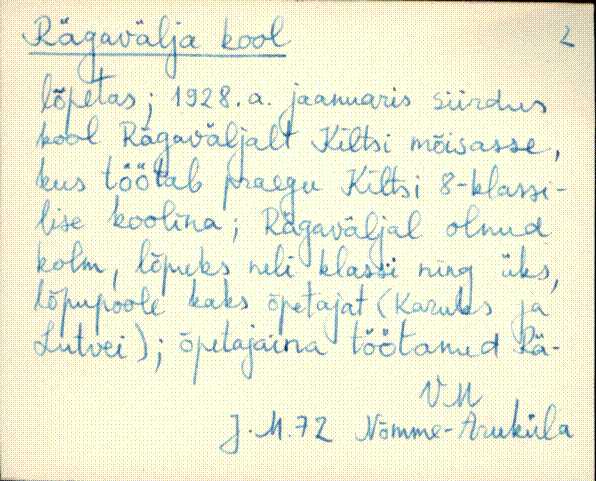 Rägavälja kool 2
lõpetas; 1928. a. jaanuaris siirdus
kool Rägaväljalt Kiltsi mõisasse,
kus töötab praegu Kiltsi 8-klassi-
lise koolina; Rägaväljal olnud
kolm, lõpuks neli klassi ning üks,
lõpupoole kaks õpetajat (Karuks ja
Lutvei); õpetajaina töötanud Rä-
VM
J. M. 72 Nõmme-Aruküla